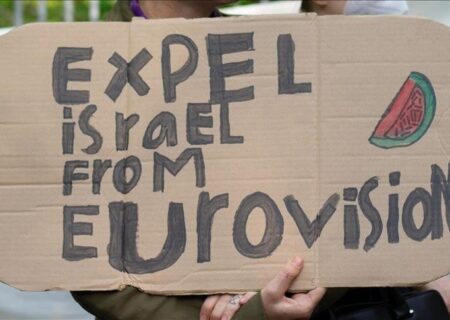 EXPEL
israEL
FROM
EUrovisioN